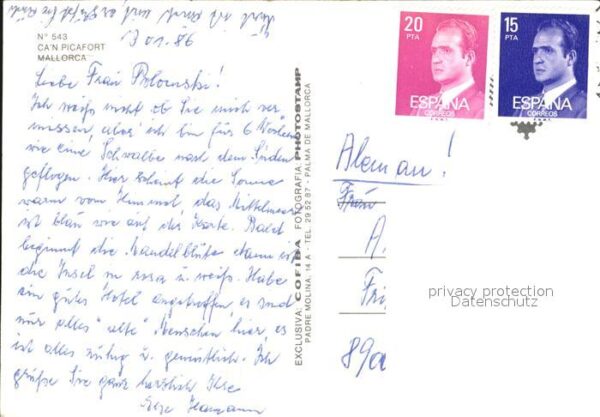 13.01.86
Nº 543
CA'N PICAFORT
MALLORCA
Liebe Frau Polowski!
Ich weiß nicht ob Sie mich ver
missen, aber ich bin für 6 Wochen
wie eine Schwalbe nach dem Süden
geflogen. Hier scheint die Sonne
warm vom Himmel, das Mittelmeer
ist blau wie auf der Karte. Bald
beginnt die Mandelblüte dann ist
die Insel in rosa u. weiß. Habe
ein gutes Hotel angetroffen, es sind
nur alles "alte" Menschen hier, es
ist alles ruhig u. gemütlich. Ich
grüße Sie ganz herzlich Ihre
EXCLUSIVA: COFIBA FOTOGRAFIA: PHOTOSTAMP
PADRE MOLINA, 14 A - TEL. 29 52 87 - PALMA DE MALLORCA
20
PTA
ESPAÑA
CORREOS
15
PTA
ESPAÑA
CORREOS
Aleman!
Frau
A.
Fri
89a
privacy protection
Datenschutz